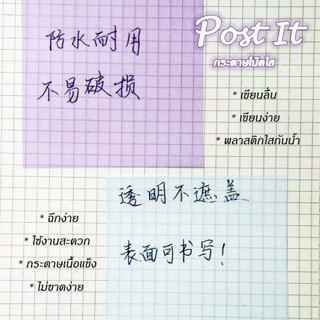 防水耐用
不易破损
Post It
กระดาษโน้ตใส
* เขียนลื่น
* เขียนง่าย
* พลาสติกใสกันน้ำ
* ฉีกง่าย
* ใช้งานสะดวก
* กระดาษเนื้อแข็ง
* ไม่ขาดง่าย
透明不遮盖
表面可书写!